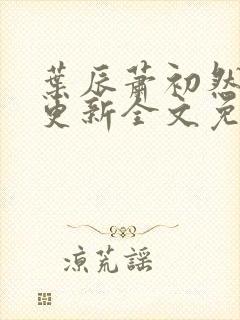 葉辰蕭初然
更新全文免
涼荒謠